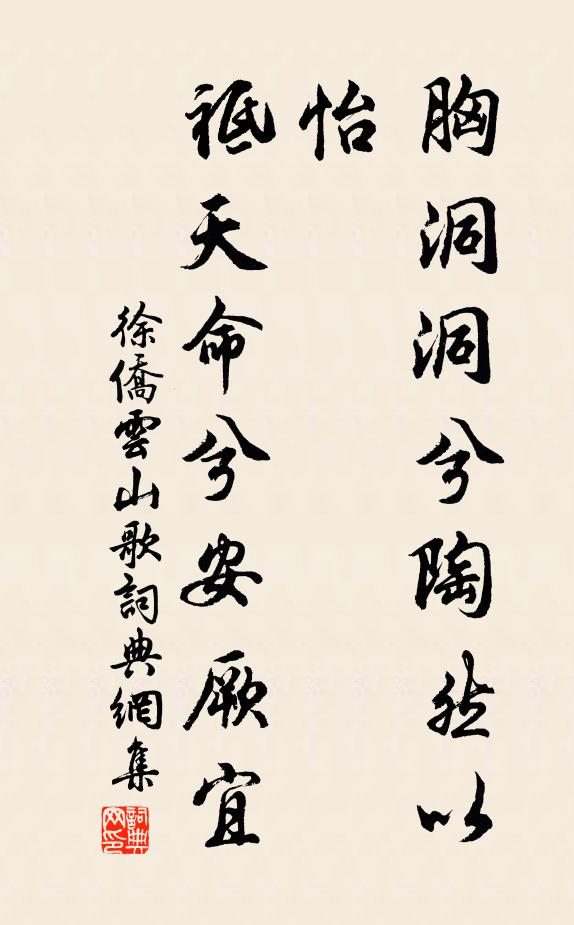 胸洞洞兮陶然以
怡
祗天命兮安厥宜
徐僑雲山歌詞典網集
詞典網印